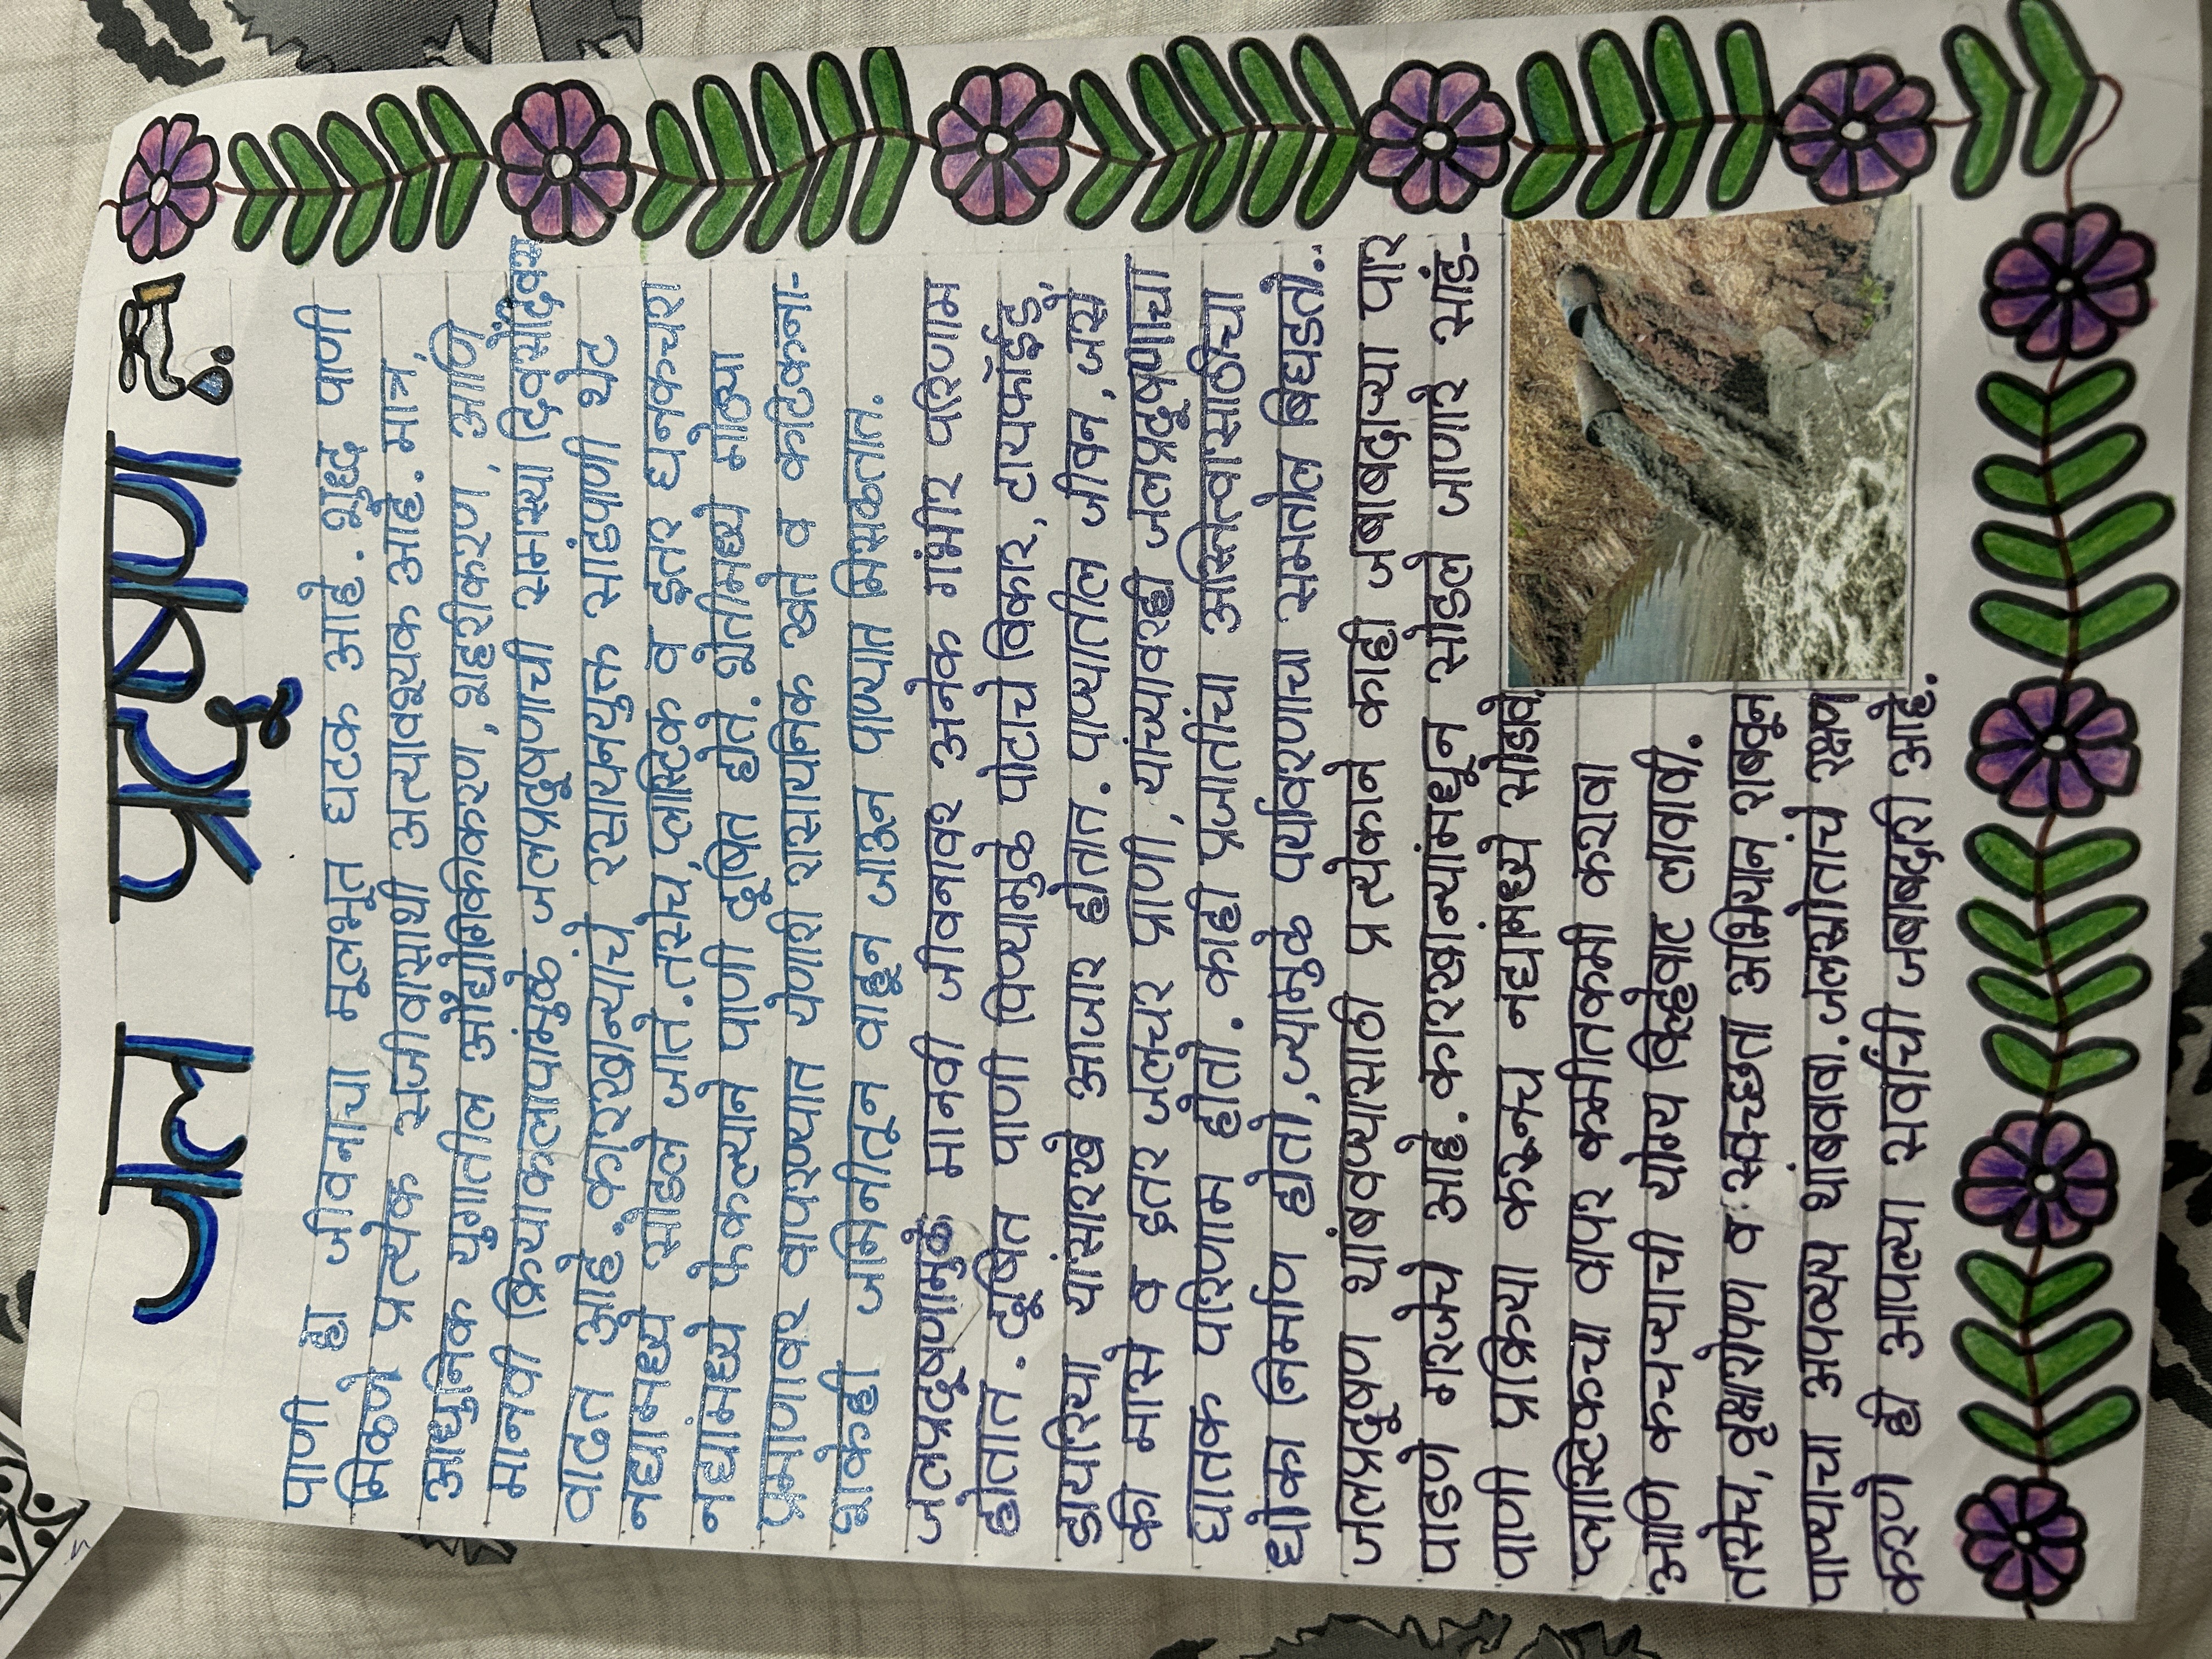 जल प्रदूषण
पाणी हा जीवनाचा मूलभूत घटक आहे. शुद्ध पाणी
मिळणे प्रत्येक सजीवासाथी अत्यावश्यक आहे. मात्र,
आधुनिक युगातील औद्योगिकीकरण, शहरीकरण, आणि
मानवी क्रियाकलापांमुळे जलप्रदूषणाची समस्या दिवसेंदिवस
वाढत आहे. कारखान्यांचे रसायनयुक्त सांडपाणी थेट
नद्यामध्ये सोडले जाते. तसेच, प्लास्टिक व इतर घनकचरा
नद्यांमध्ये फेकल्याने पाणी दूषित होते. शेतीमध्ये मोठ्या
प्रमाणावर वापरण्यात येणारी रासायनिक खते व कटिकना-
शकेही जमिनीतून वाहून जाऊन पाण्यात मिसळतात.
जलप्रदूषणामुळे मानवी जीवनावर अनेक गंभीर परिणाम
होतात. दूषित पाणी पिण्यामुळे पोटाचे विकार, टायफॉईड,
डायरिया यांसारखे आजार होतात. पाण्यातील जीवन, जसे
की मासे व इतर जलचर प्राणी, यांच्यावरही जलप्रदूषणाचा
घातक परिणाम होतो. काही प्रजातींचा अस्तित्वासाठीचा
धोका निर्माण होतो, ज्यामुळे पर्यावरणाचा समतोल बिघडतो..
जलप्रदूषण थांबवण्यासाठी प्रत्येकाने काही जबाबदाऱ्या पार
पाडणे गरजेचे आहे. कारखान्यांमधून सोडले जाणारे सांड-
पाणी प्रक्रिया करूनच नद्यांमध्ये सोडावे.
प्लास्टिकचा वापर कमीतकमी करावा
आणि कचऱ्याची योग्य विल्हेवाट लावावी.
तसेच, वृक्षारोपण व स्वच्छता अभियान राबवून
पाण्याचा अपव्यय थांबवावा. जलस्रोतांचे रक्षण
करणे ही आपल्या सर्वांची जबाबदारी आहे.